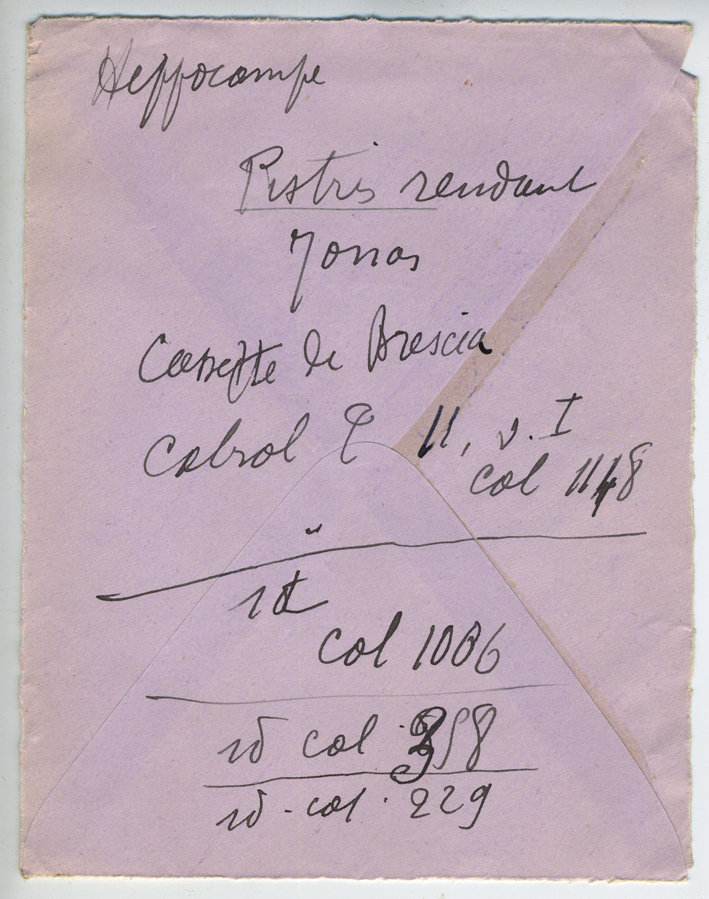 Hippocampe
Pistris rendant
Jonas
Cassette de Brescia
Cabrol T 11, v. I
col 1148
id
col 1006
id col. 358
id - col. 229